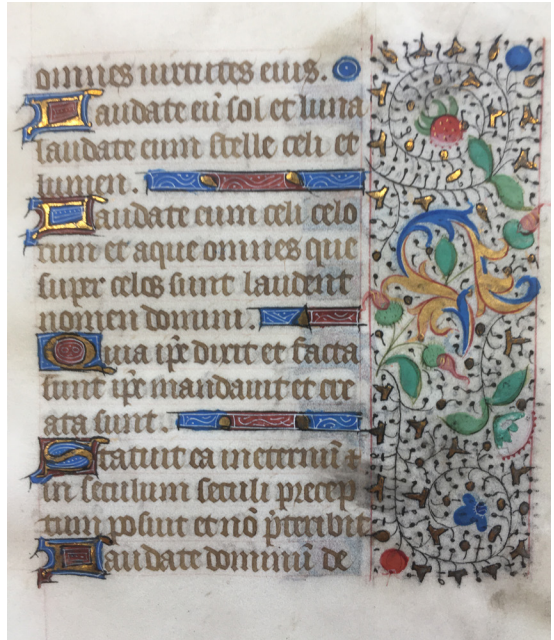 omnes uirtutes eius.
Laudate eū sol et luna
laudate eum stelle celi et
lumen.
Laudate eum celi celo
rum et aque omnes que
super celos sunt laudent
nomen domini.
Quia ip̄e dixit et facta
sunt ip̄e mandauit et cre
ata sunt.
Statuit ea in eternū ⁊
in seculum seculi precep
tum posuit et nō p̄teribit
Laudate dominū de